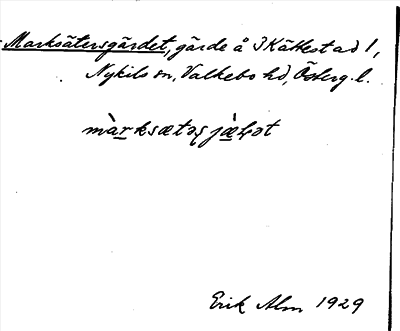 Marksätersgärdet, gärde å 3 Kättestad 1,
Nykils sn, Valkebo hd, Österg. l.
Erik Alm 1929